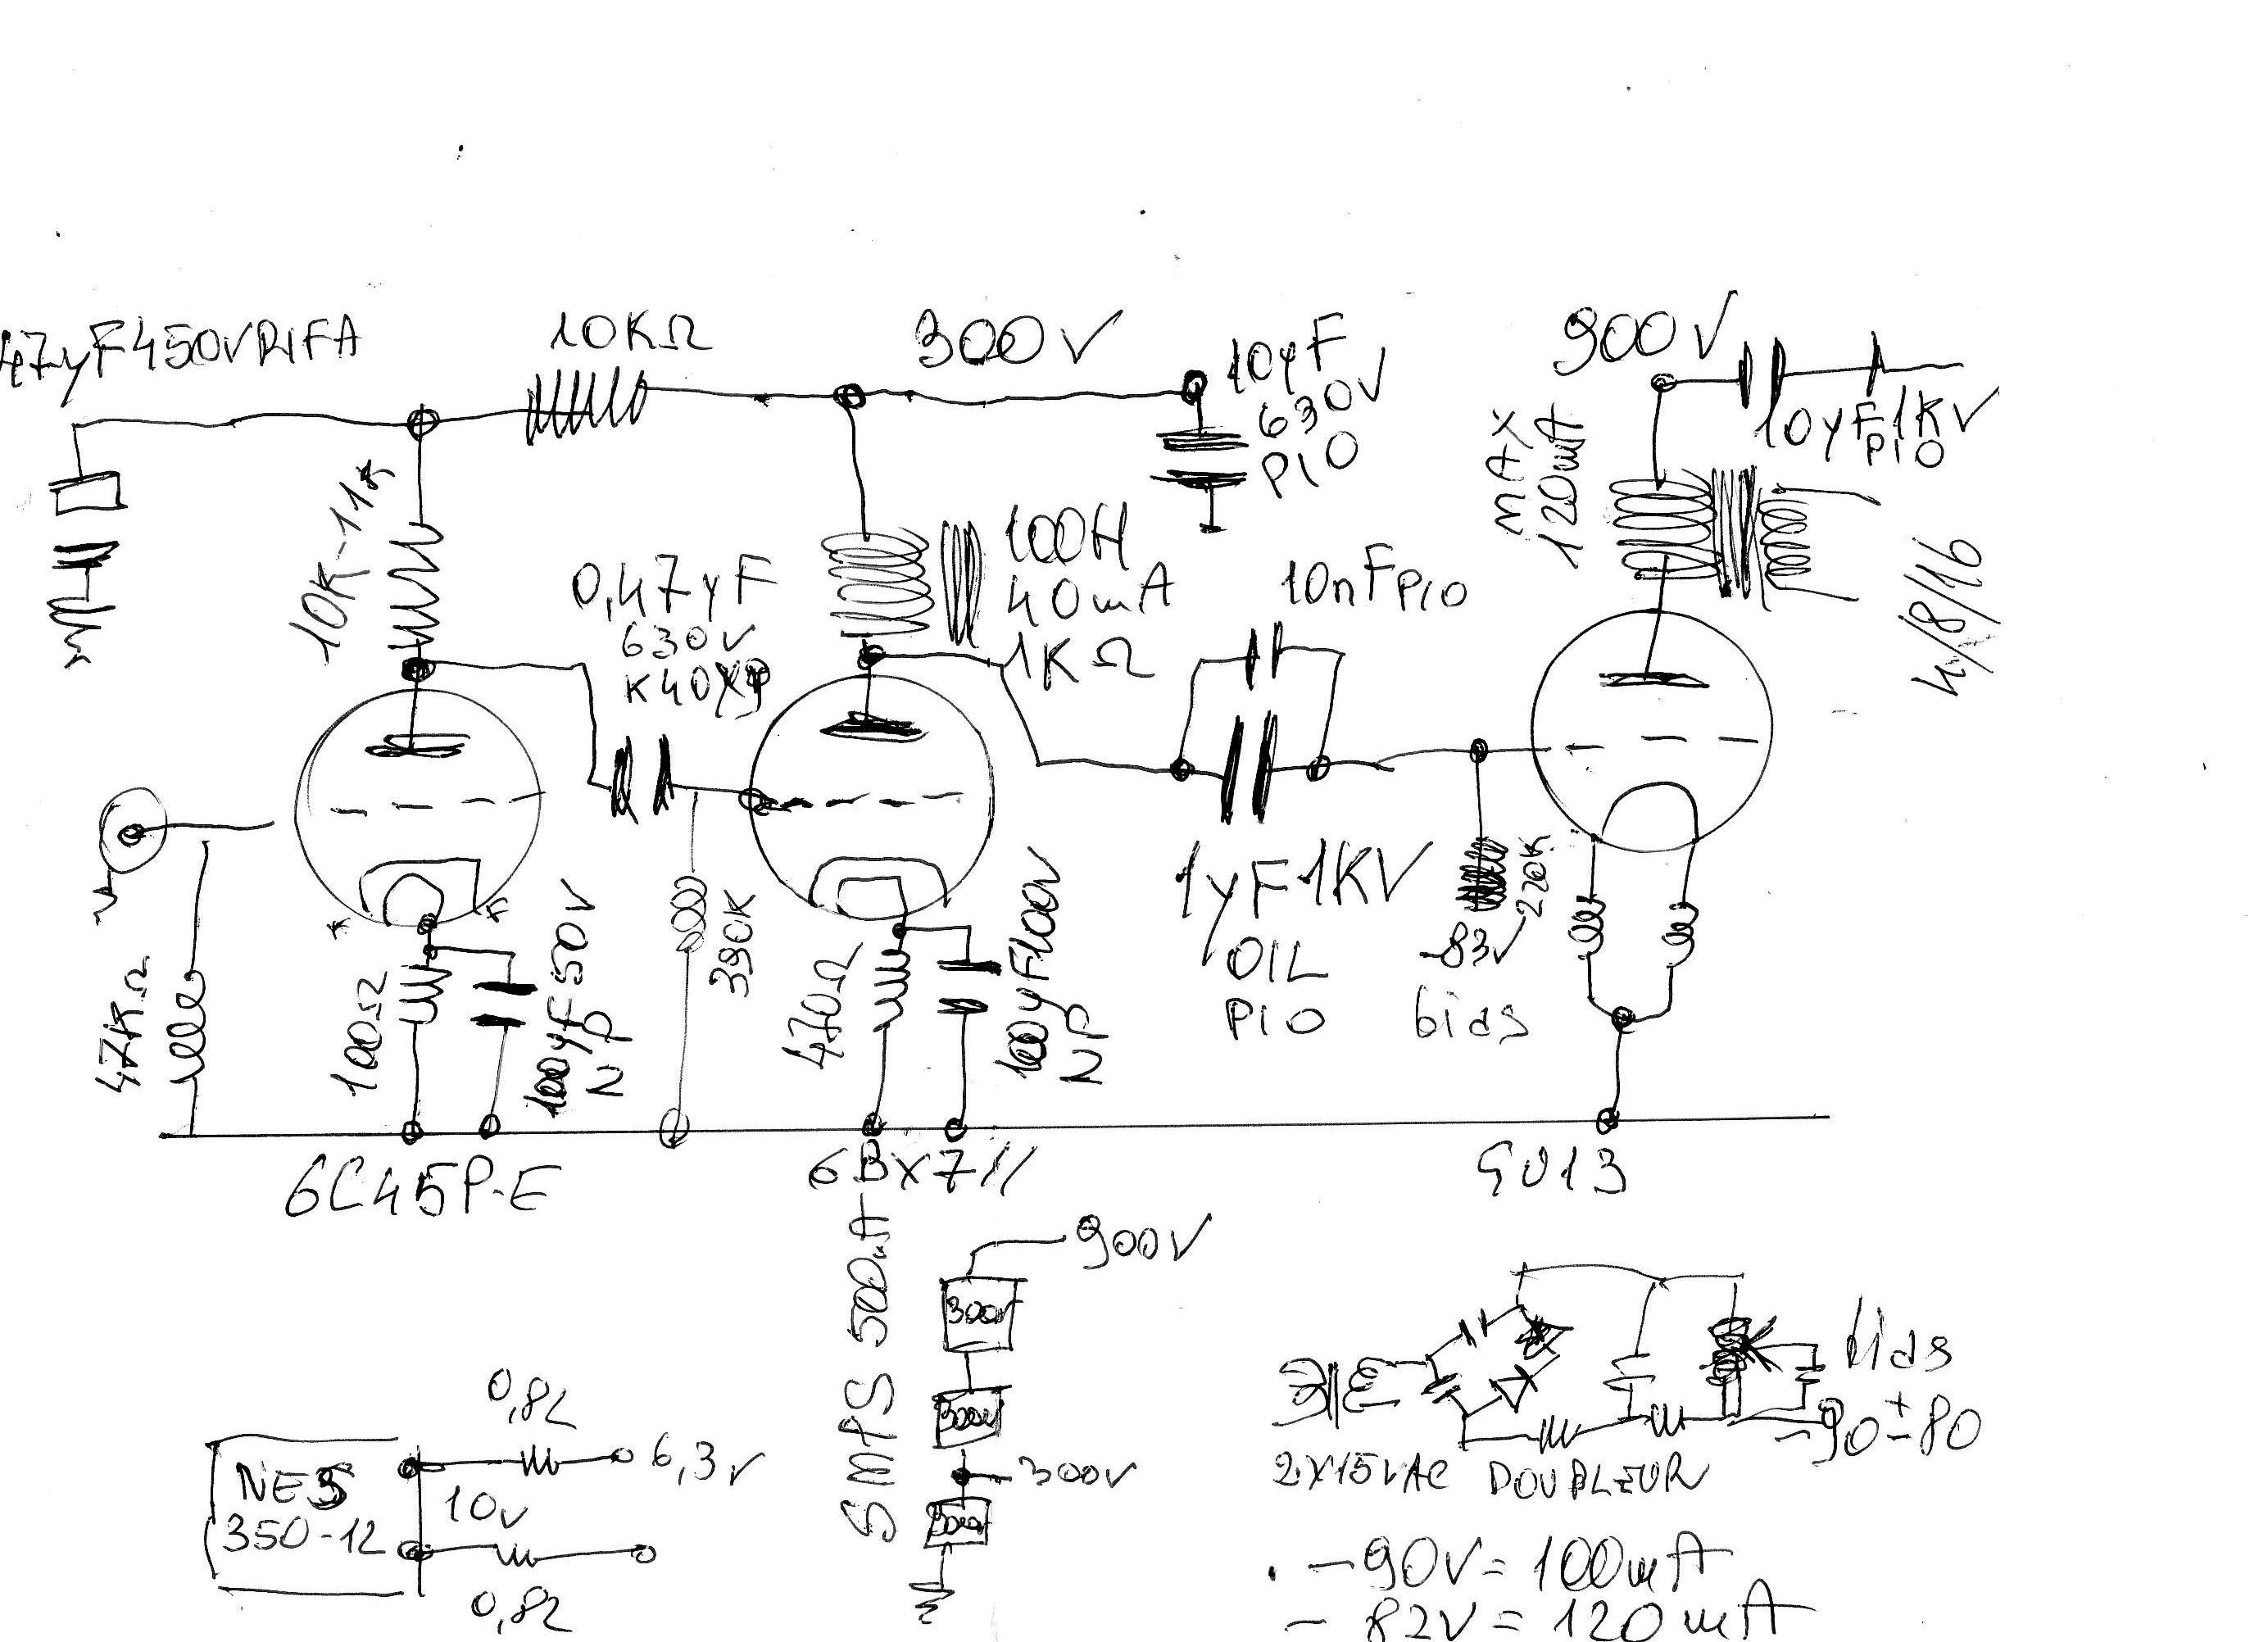 47µF450VRIFA
10KΩ
300V
10µF
630V
PIO
900V
10µF1KV
PIO
MAX
120mA
4/8/16
10K-11K
0,47µF
630V
K40Y9
100H
40mA
1KΩ
10nFPIO
1µF1KV
OIL
PIO
220K
-83V
bias
47KΩ
100Ω
100µF50V
NP
390K
470Ω
100µF100V
NP
6C45P-E
6BX7//
GU13
SMPS 500mA
900V
300V
300V
300V
300V
NES
350-12
10V
0,82
6,3V
0,82
2X15VAC DOUBLEUR
bias
-90 ± 80
-90V = 100mA
- 82V = 120mA